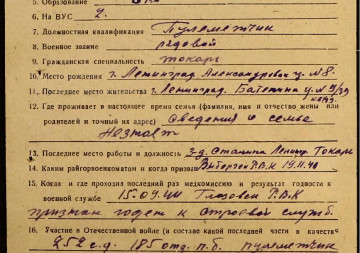 5. Образование
6. На ВУС 2.
7. Должностная квалификация Пулеметчик
8. Военное звание рядовой
9. Гражданская специальность токарь
10. Место рождения г. Ленинград Александровск ул. №8.
11. Последнее место жительства г. Ленинград. Батенина ул. №
12. Где проживает в настоящее время семья (фамилия, имя и отчество жены или
родителей и точный их адрес) Сведения о семье
Незнает
13. Последнее место работы и должность з-д. Сталина Ленинг. Токарь
14. Каким райгорвоенкоматом и когда призван Выборгск Р.В.К 19.11.40
15. Когда и где проходил последний раз медкомиссию и результат годности к
военной службе 15.09.44 Глазовск Р.В.К
признан годен к строевой службе.
16. Участие в Отечественной войне (в составе какой последней части и в качестве
252 с.д. 185 отд. п.б. пулеметчик